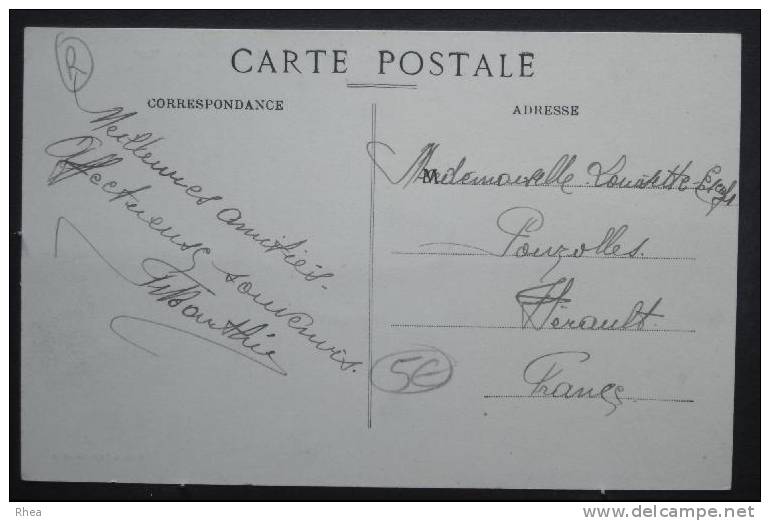 CARTE POSTALE
CORRESPONDANCE
ADRESSE
Meilleures amitiés.
Affectueux souvenirs.
Mademoiselle Louisette
Pouzolles.
Hérault.
France
5€
Rhea
www.delcampe.net